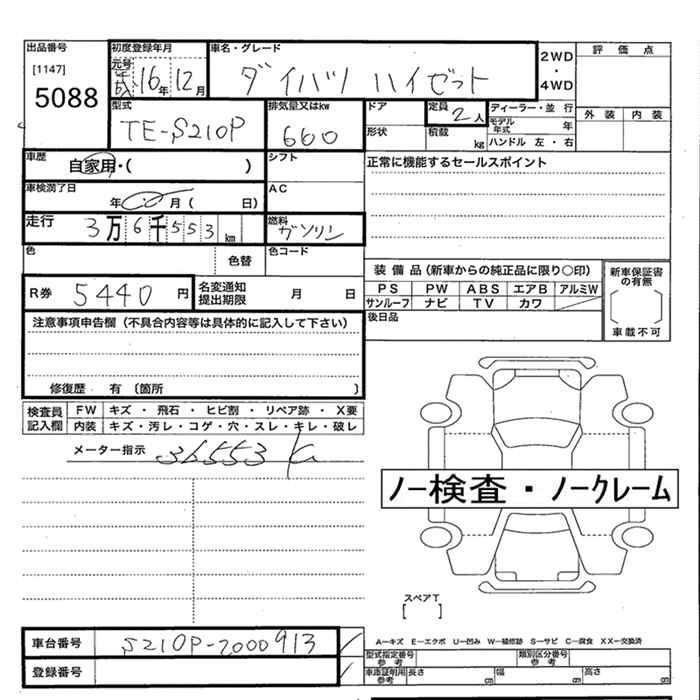 出品番号 初度登録年月 車名・グレード 2WD・4WD 評価点
[1147] 元号
5088 平成 16年 12月 ダイハツ ハイゼット
型式 排気量又はkw ドア 定員 ディーラー・並行 外装 内装
TE-S210P 660 形状 積載 kg 2人 モデル年式 年
ハンドル 左・右
車歴 自家用・( ) シフト 正常に機能するセールスポイント
車検満了日 年 月( 日) AC
走行 3万6千553km 燃料 ガソリン
色 色替 色コード
装備品(新車からの純正品に限り○印) 新車保証書の有無
R券 5440円 名変通知提出期限 月 日 PS PW ABS エアB アルミW
サンルーフ ナビ TV カワ 車載不可
注意事項申告欄(不具合内容等は具体的に記入して下さい) 後日品
修復歴 有〔箇所 〕
検査員記入欄 FW キズ・飛石・ヒビ割・リペア跡・X要
内装 キズ・汚レ・コゲ・穴・スレ・キレ・破レ
メーター指示 36553 K
ノー検査・ノークレーム
スペアT
[ ]
車台番号 S210P-2000913
A…キズ E…エクボ U…凹み W…補修跡 S…サビ C…腐食 XX…交換済
登録番号 型式指定番号 参考 類別区分番号 参考
車庫証明用参考 長さ cm 幅 cm 高さ cm